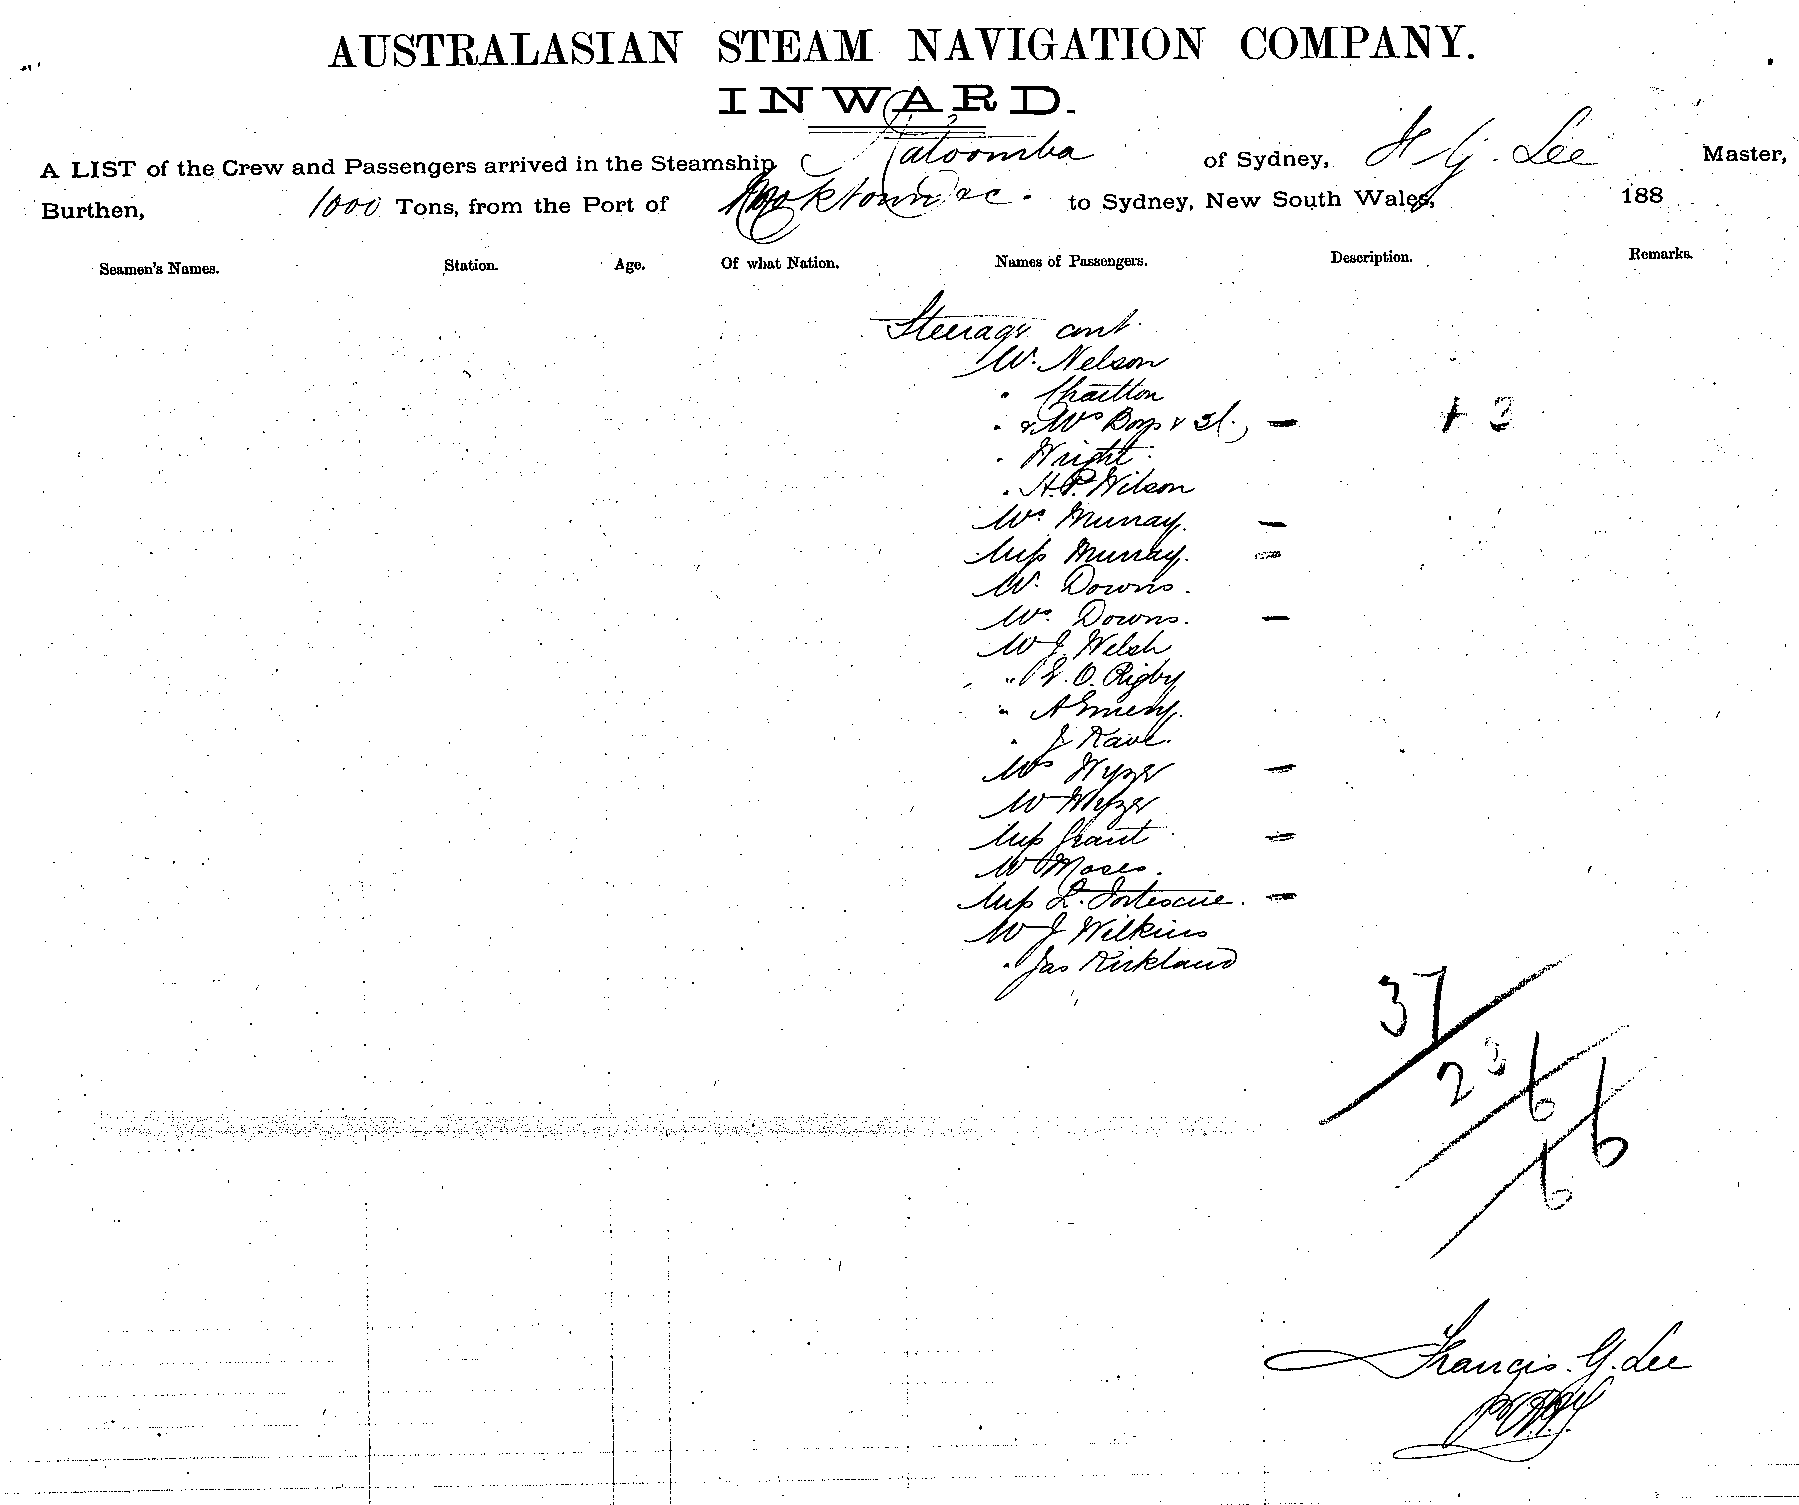 AUSTRALASIAN STEAM NAVIGATION COMPANY.
INWARD.
A LIST of the Crew and Passengers arrived in the Steamship Katoomba of Sydney, F G. Lee Master,
Burthen, 1000 Tons, from the Port of Cooktown &c. to Sydney, New South Wales, 188
Seamen's Names. Station. Age. Of what Nation. Names of Passengers. Description. Remarks.
Steerage cont.
Mr. Nelson
" Charlton
" & Mrs Boys & 3 — + 3
" Wright
" H.P. Wilson
Mrs Murray. —
Miss Murray. =
Mr. Downs.
Mrs. Downs. —
Mr J Welsh
" E. O. Rigby
" A Emery.
" J Kave.
Mrs Wyzer —
Mr Wyzer
Miss Grant =
Mr Moses.
Miss L. Fortescue. —
Mr J Wilkins
" Jas Kirkland
37
23 6
6 6
Francis. G. Lee